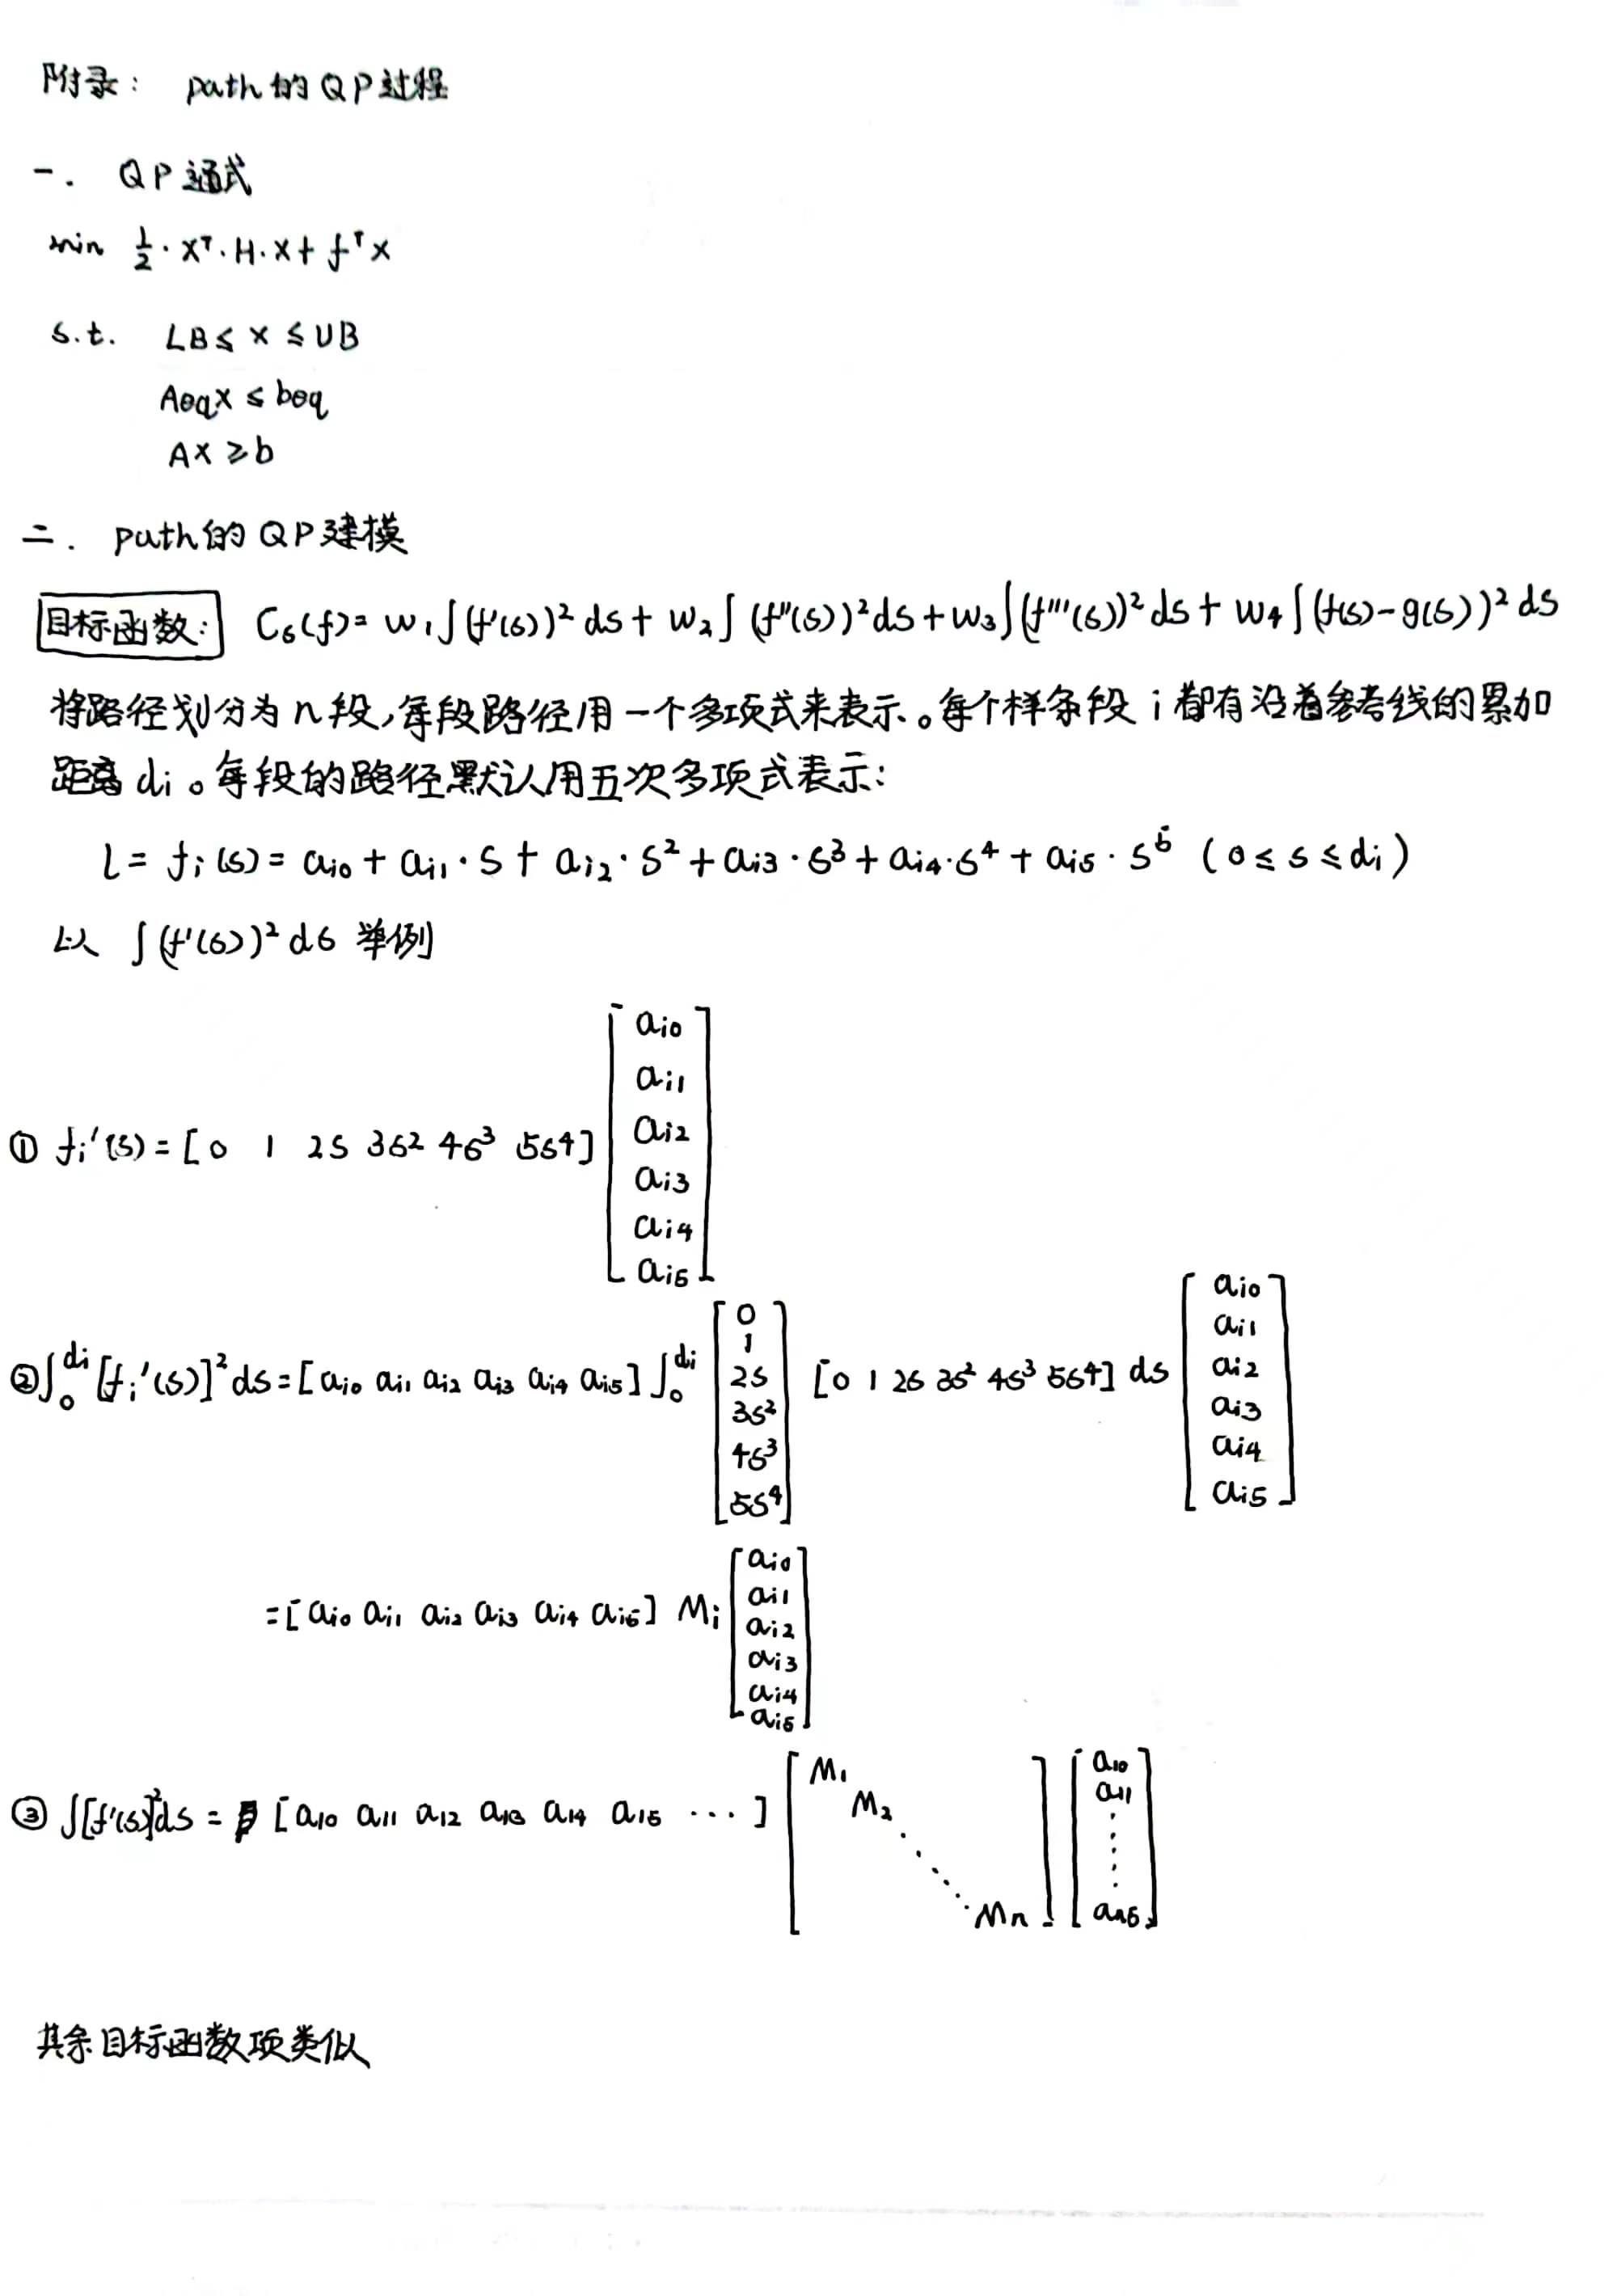 附录: path的QP过程
一. QP通式
min ½·xᵀ·H·x+fᵀx
s.t. LB≤x≤UB
Aeqx≤beq
Ax≥b
二. path的QP建模
目标函数: Cs(f)=w₁∫(f'(s))²ds+w₂∫(f''(s))²ds+w₃∫(f'''(s))²ds+w₄∫(f(s)-g(s))²ds
将路径划分为n段,每段路径用一个多项式来表示。每个样条段i都有沿着参考线的累加
距离di。每段的路径默认用五次多项式表示:
l=fi(s)=ai0+ai1·s+ai2·s²+ai3·s³+ai4·s⁴+ai5·s⁵ (0≤s≤di)
以∫(f'(s))²ds举例
① fi'(s)=[0 1 2s 3s² 4s³ 5s⁴] [ai0 ai1 ai2 ai3 ai4 ai5]
②∫₀^di[fi'(s)]²ds=[ai0 ai1 ai2 ai3 ai4 ai5]∫₀^di [0 1 2s 3s² 4s³ 5s⁴] [0 1 2s 3s² 4s³ 5s⁴]ds [ai0 ai1 ai2 ai3 ai4 ai5]
=[ai0 ai1 ai2 ai3 ai4 ai5] Mi [ai0 ai1 ai2 ai3 ai4 ai5]
③∫[f'(s)]²ds=[a10 a11 a12 a13 a14 a15 ···] [M1 M2 ····· Mn] [a10 a11 ····· an5]
其余目标函数项类似